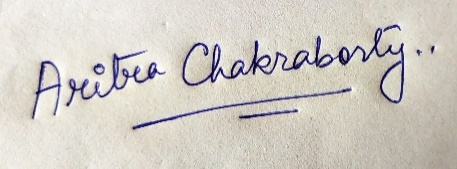 Aritra Chakraborty..